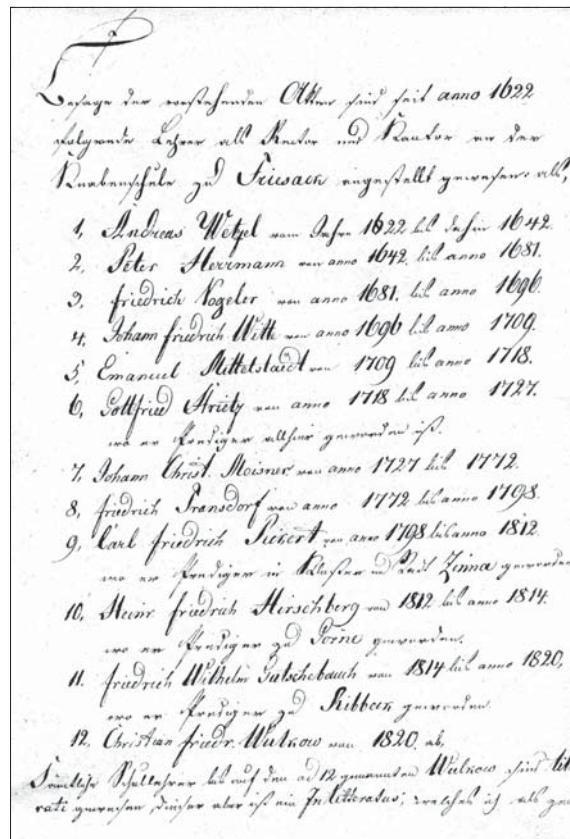 Besage der vorstehenden Akten sind seit anno 1622
folgende Lehrer als Rector und Kantor an der
Knabenschule zu Friesack angestellt gewesen, als,
1, Andreas Wetzel vom Jahre 1622 bis dahin 1642.
2, Peter Herrmann von anno 1642. bis anno 1681.
3, Friedrich Vogeler von anno 1681. bis anno 1696.
4, Johann Friedrich Witte von anno 1696 bis anno 1709.
5, Emanuel Mittelstaedt von 1709 bis anno 1718.
6, Gottfried Strütz von anno 1718 bis anno 1727.
wo er Prediger allhier geworden ist.
7, Johann Christ. Meisner von anno 1727 bis 1772.
8, Friedrich Pransdorf von anno 1772 bis anno 1798.
9, Carl Friedrich Pickert von anno 1798 bis anno 1812.
wo er Prediger in Kloster und Stadt Zinna geworden
10, Heinr Friedrich Hirschberg von 1812 bis anno 1814.
wo er Prediger zu geworden.
11. Friedrich Wilhelm Gutschebauch von 1814 bis anno 1820,
wo er Prediger zu Ribbeck geworden.
12, Christian Friedr. Wulkow von 1820. ab,
Sämtliche Schullehrer bis auf den ad 12 genannten Wulkow sind lite
rati gewesen, dieser aber ist ein Inlitteratus, welches ich als